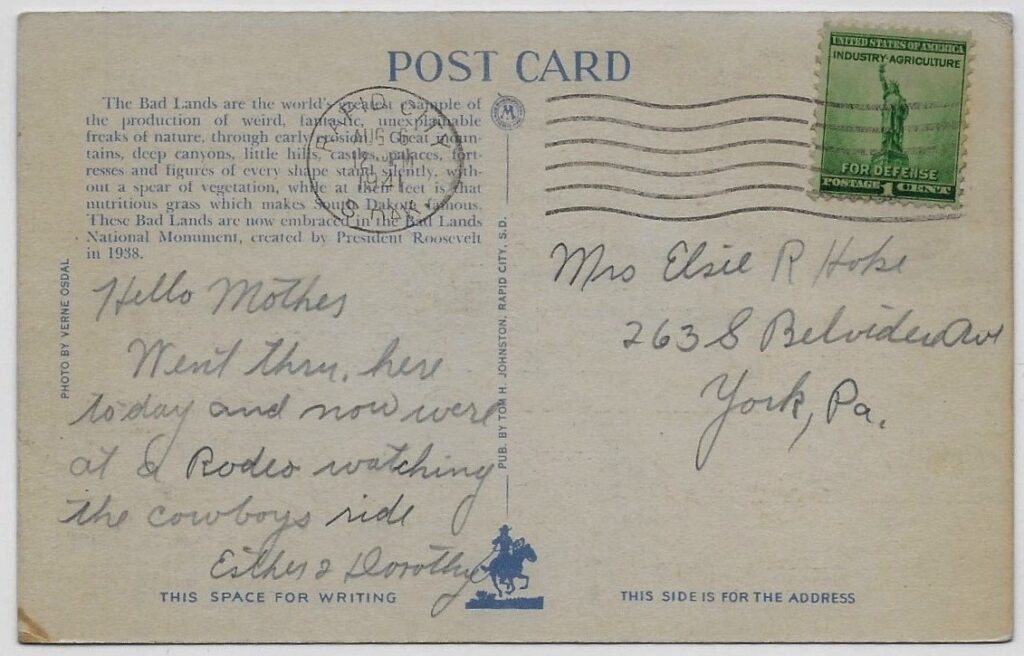 POST CARD
The Bad Lands are the world's greatest example of
the production of weird, fantastic, unexplainable
freaks of nature, through early erosion. Great moun-
tains, deep canyons, little hills, castles, palaces, fort-
resses and figures of every shape stand silently, with-
out a spear of vegetation, while at their feet is that
nutritious grass which makes South Dakota famous.
These Bad Lands are now embraced in the Bad Lands
National Monument, created by President Roosevelt
in 1938.
RAPID CITY
AUG 6
PM
1941
S. DAK.
UNITED STATES OF AMERICA
INDUSTRY·AGRICULTURE
FOR DEFENSE
POSTAGE 1 CENT
PHOTO BY VERNE OSDAL
Hello Mother
Went thru, here
today and now were
at a Rodeo watching
the cowboys ride
Esther & Dorothy
PUB. BY TOM H. JOHNSTON, RAPID CITY, S.D.
Mrs Elsie R Hoke
263 S Belvidere Ave
York, Pa.
THIS SPACE FOR WRITING
THIS SIDE IS FOR THE ADDRESS